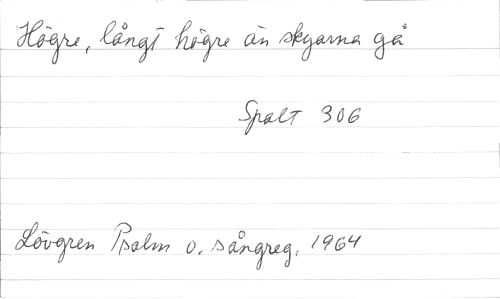 Högre, långt högre än skyarna gå
Spalt 306
Lövgren Psalm o. sångreg. 1964